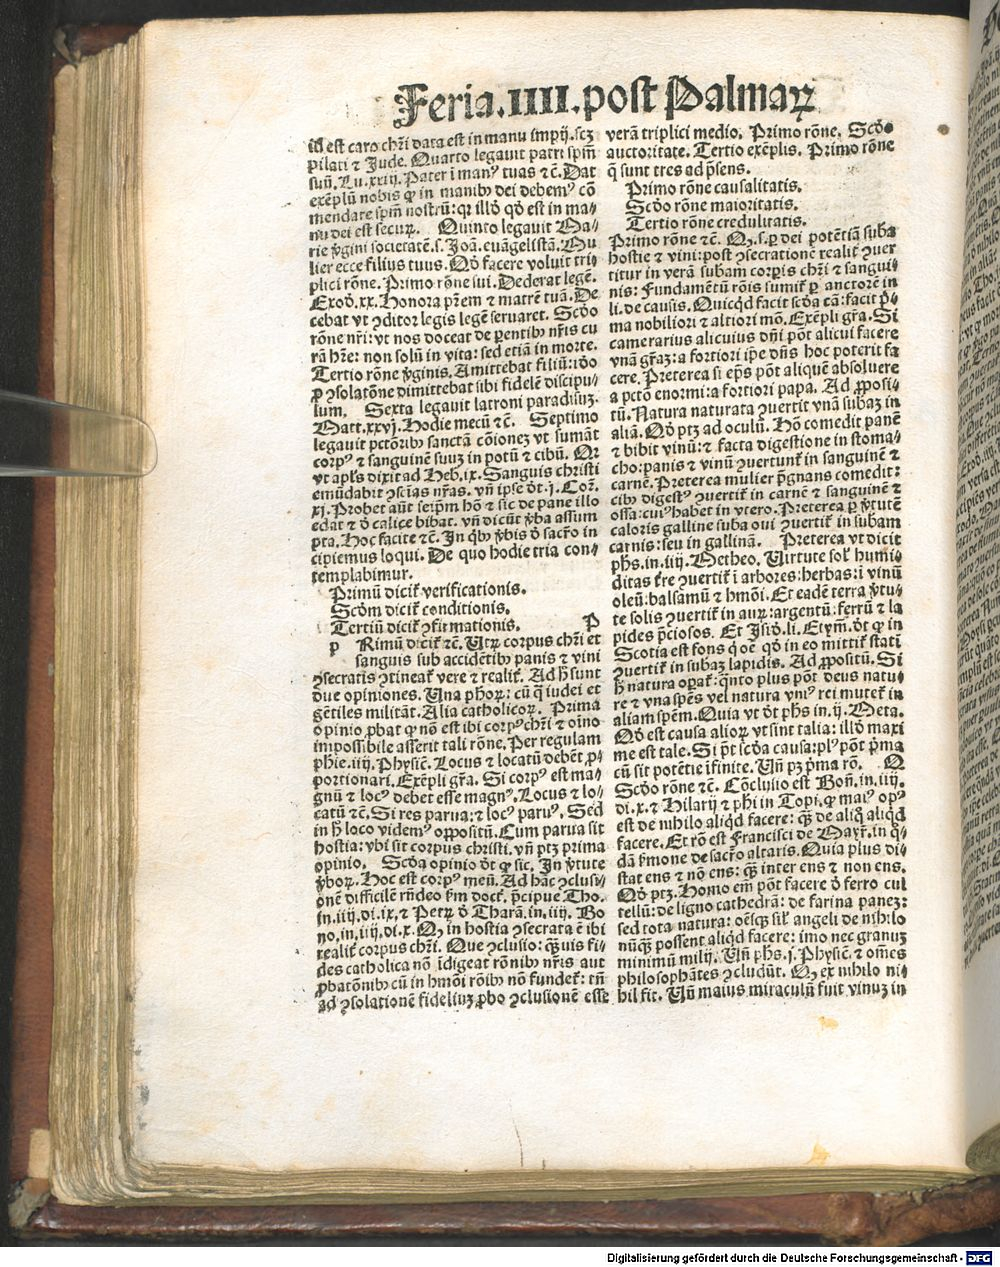 Feria.IIII.post Palmaꝝ
est caro chr̄i data est in manu impij.scꝫ
pilati ⁊ Jude. Quarto legauit patri spm̄
suū. Lu.xxiij. Pater i man⁹ tuas ⁊c̄. Dat
exēplū nobis ꝙ in manibꝰ dei debem⁹ cō
mendare spm̄ nostrū: qꝛ illd̓ qd̓ est in ma⸗
nu dei est secuꝝ. Quinto legauit Ma⸗
rie ꝟgini societatē.s. Joā. euāgelistā. Mu
lier ecce filius tuus. Qd̓ facere voluit tri⸗
plici rōne. Primo rōne sui. Dederat legē.
Exod̓.xx. Honora pr̄em ⁊ matrē tuā. De
cebat vt ꝯditor legis legē seruaret. Scd̓o
rōne nr̄i: vt nos doceat de parentibꝰ nr̄is cu
rā hr̄e: non solū in vita: sed etiā in morte.
Tertio rōne ꝟginis. Amittebat filiū: iō
ꝓ ꝯsolatōne dimittebat sibi fidelē discipu⸗
lum. Sexta legauit latroni paradisuꝫ.
Matt.xxvj. Hodie mecū ⁊c̄. Septimo
legauit pctōribꝰ sanctā cōionez vt sumāt
corp⁹ ⁊ sanguinē suuꝫ in potū ⁊ cibū. Qꝛ
vt apl̓s dixit ad Heb.ix. Sanguis christi
emūdabit ꝯscias nr̄as. vn̄ ipse dt̓.j. Coꝝ.
xj. Probet aūt seip̄m hō ⁊ sic de pane illo
edat ⁊ d̓ calice bibat. vn̄ dicūt ꝟba assum
pta. Hoc facite ⁊c̄. In qͥbꝰ ꝟbis d̓ sacr̄o in
cipiemus loqui. De quo hodie tria con⸗
templabimur.
Primū dicit̓ verificationis.
Scd̓m dicit̓ conditionis.
Tertiū dicit̓ ꝯfirmationis.
P
p Rimū dicit̓ ⁊c̄. Utꝝ corpus chr̄i et
sanguis sub accidētibꝰ panis ⁊ vini
ꝯsecratis ꝯtineat̓ vere ⁊ realit̓. Ad h̄ sunt
due opiniones. Una ph̄oꝝ: cū q̄ iudei et
gētiles militāt. Alia catholicoꝝ. Prima
opinio ꝓbat ꝙ nō est ibi corp⁹ chr̄i ⁊ oīno
impossibile asserit tali rōne. Per regulam
phie.iiij. Physic̄. Locus ⁊ locatū debēt ꝓ⸗
portionari. Exēpli gr̄a. Si corp⁹ est ma⸗
gnū ⁊ loc⁹ debet esse magn⁹. Locus ⁊ lo⸗
catū ⁊c̄. Si res parua: ⁊ loc⁹ paru⁹. Sed
in h̄ loco videm⁹ oppositū. Cum parua sit
hostia: vbi sit corpus christi. vn̄ ptꝫ prima
opinio. Scd̓a opinio dt̓ ꝙ sic. In ꝟtute
ꝟboꝝ. Hoc est corp⁹ meū. Ad hāc ꝯclusi⸗
onē difficilē rn̄deo fm̄ doct̓. p̄cipue Tho.
in.iiij.di.ix. ⁊ Petꝝ d̓ Tharā. in.iiij. Bo
no. in.iiij.di.x. Qꝫ in hostia ꝯsecrata ē ibi
realit̓ corpus chr̄i. Que ꝯclusio: qͣuis fi⸗
des catholica nō īdigeat rōnibꝰ nr̄is aut
ꝓbatōnibꝰ cū in hm̄oi rōibꝰ nō fundet̓: tn̄
ad ꝯsolationē fideliuꝫ ꝓbo ꝯclusionē esse
verā triplici medio. Primo rōne. Scd̓o
auctoritate. Tertio exēplis. Primo rōne
q̄ sunt tres ad p̄sens.
Primo rōne causalitatis.
Scd̓o rōne maioritatis.
Tertio rōne credulitatis.
Primo rōne ⁊c̄. Qꝫ.s. ꝑ dei potētiā suba
hostie ⁊ vini: post ꝯsecrationē realit̓ ꝯuer
titur in verā subam corꝑis chr̄i ⁊ sangui⸗
nis: Fundamētū rōis sumit̓ ꝑ auctorē in
li. de causis. Quicqd̓ facit scd̓a cā: facit p̄i
ma nobiliori ⁊ altiori mō. Exēpli gr̄a. Si
camerarius alicuius dn̄i pōt alicui facere
vnā gr̄aꝫ: a fortiori ip̄e dn̄s hoc poterit fa
cere. Preterea si ep̄s pōt aliquē absoluere
a pctō enormi: a fortiori papa. Ad ꝓposi⸗
tū. Natura naturata ꝯuertit vnā subaꝫ in
aliā. Qd̓ ptꝫ ad oculū. Hō comedit panē
⁊ bibit vinū: ⁊ facta digestione in stoma⸗
cho: panis ⁊ vinū ꝯuertunt̓ in sanguinē ⁊
carnē. Preterea mulier p̄gnans comedit:
cibꝰ digest⁹ ꝯuertit̓ in carnē ⁊ sanguinē ⁊
ossa: cui⁹ habet in vtero. Preterea ꝑ ꝟtutē
caloris galline suba oui ꝯuertit̓ in subam
carnis: seu in gallinā. Preterea vt dicit
phs. in.iiij. Metheo. Uirtute sol̓ humi⸗
ditas tr̄re ꝯuertit̓ i arbores: herbas: i vinū
oleū: balsamū ⁊ hm̄oi. Et eadē terra ꝟtu⸗
te solis ꝯuertit̓ in auꝝ: argentū: ferrū ⁊ la
pides p̄ciosos. Et Isid̓. li. Etym. dt̓ ꝙ in
Scotia est fons q̓ oē qd̓ in eo mittit̓ statī
ꝯuertit̓ in subaꝫ lapidis. Ad ꝓpositū. Si
h̄ natura operat̓: qͣnto plus pōt deus natu⸗
re ⁊ vna spēs vel natura vni⁹ rei mutet̓ in
aliam spēm. Quia vt dt̓ phs in.ij. Meta.
Qd̓ est causa alioꝝ vt sint talia: illd̓ maxi
me est tale. Si pōt scd̓a causa: pl⁹ pōt p̄ma
cū sit potētie īfinite. Un̄ pꝫ p̄ma rō. Q
Scd̓o rōne ⁊c̄. Cōclusio est Bon̄. in.iiij.
di.x. ⁊ Hilarij ⁊ phi in Topi. ꝙ mai⁹ op⁹
est de nihilo aliqd̓ facere: qͣꝫ de aliq̓ aliqd̓
facere. Et rō est Francisci de Mayr̄. in q̄⸗
dā ẜmone de sacr̄o altaris. Quia plus di⸗
stat ens ⁊ nō ens: qͣꝫ inter ens ⁊ non ens.
Qd̓ ptꝫ. Homo em̄ pōt facere d̓ ferro cul
tellū: de ligno cathedrā: de farina paneꝫ:
sed tota natura: oēsqꝫ sil̓ angeli de nihilo
nūqͣꝫ possent aliqd̓ facere: imo nec granuꝫ
minimū milij. Un̄ phs.j. Physic̄. ⁊ om̄es
philosophātes ꝯcludūt. Qꝫ ex nihilo ni⸗
hil fit. Un̄ maius miraculū fuit vinuꝫ in
Digitalisierung gefördert durch die Deutsche Forschungsgemeinschaft - DFG